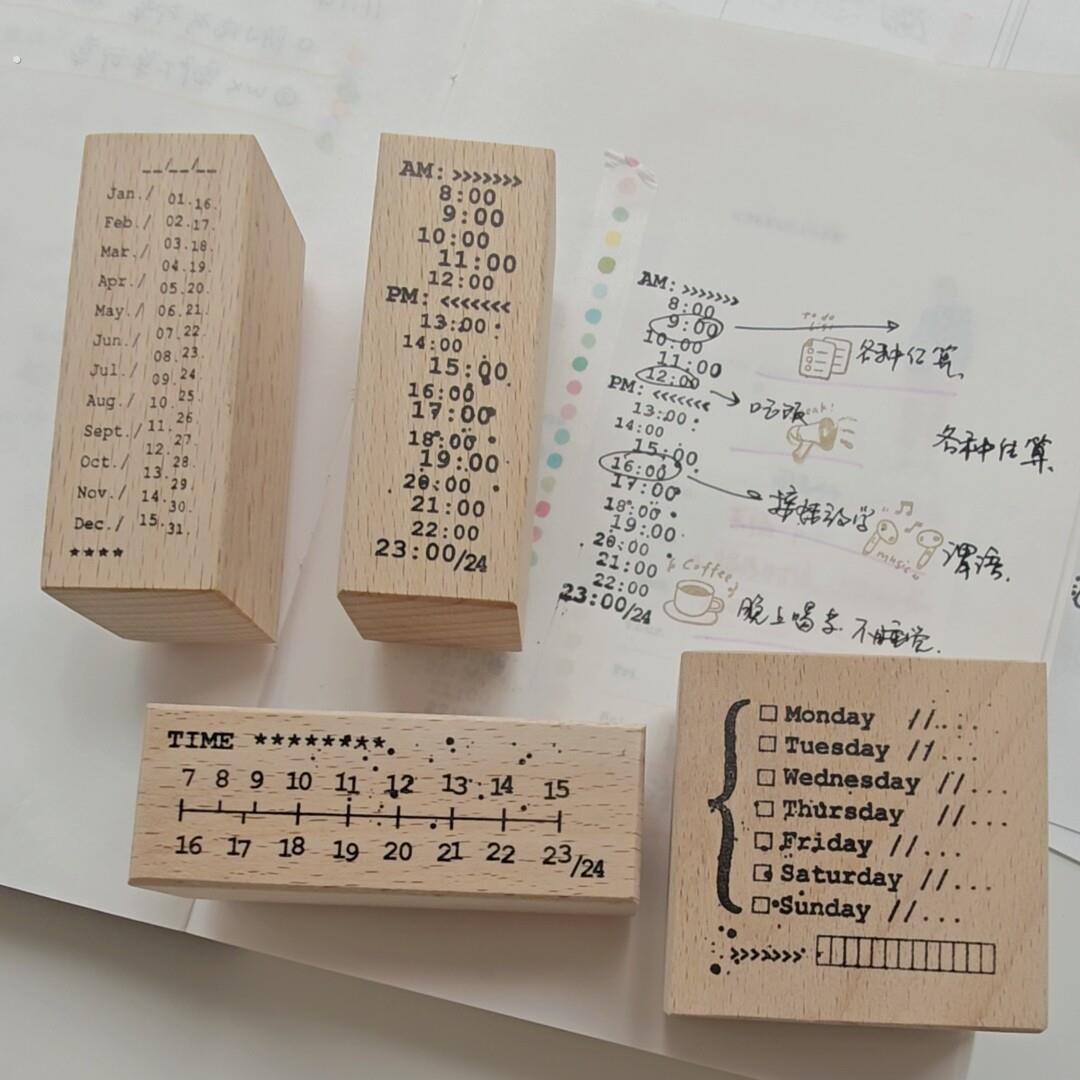 __/__/__
Jan./ 01.16.
Feb./ 02.17.
Mar./ 03.18.
Apr./ 04.19.
05.20.
May./ 06.21.
Jun./ 07.22.
08.23.
Jul./ 09.24.
25.
Aug./ 10.26
Sept./ 11.27.
12.28.
Oct./ 13.29.
Nov./ 14.30.
Dec./ 15.31.
****
AM: >>>>>>>
8:00
9:00
10:00
11:00
12:00
PM: <<<<<<<
13:00
14:00
15:00
16:00
17:00
18:00
19:00
20:00
21:00
22:00
23:00/24
AM: >>>>>>>
8:00
9:00
To do
list
10:00
各种估算
11:00
12:00
吃饭
PM: <<<<<<<
13:00
14:00
15:00
各种估算
16:00
17:00
18:00
19:00
music
20:00
21:00
Coffee
22:00
23:00/24
晚上喝茶 不睡觉
TIME ********
7 8 9 10 11 12 13 14 15
16 17 18 19 20 21 22 23/24
{
□ Monday //...
□ Tuesday //...
□ Wednesday //...
□ Thursday //...
□ Friday //...
□ Saturday //...
□ Sunday //...
>>>>>>>